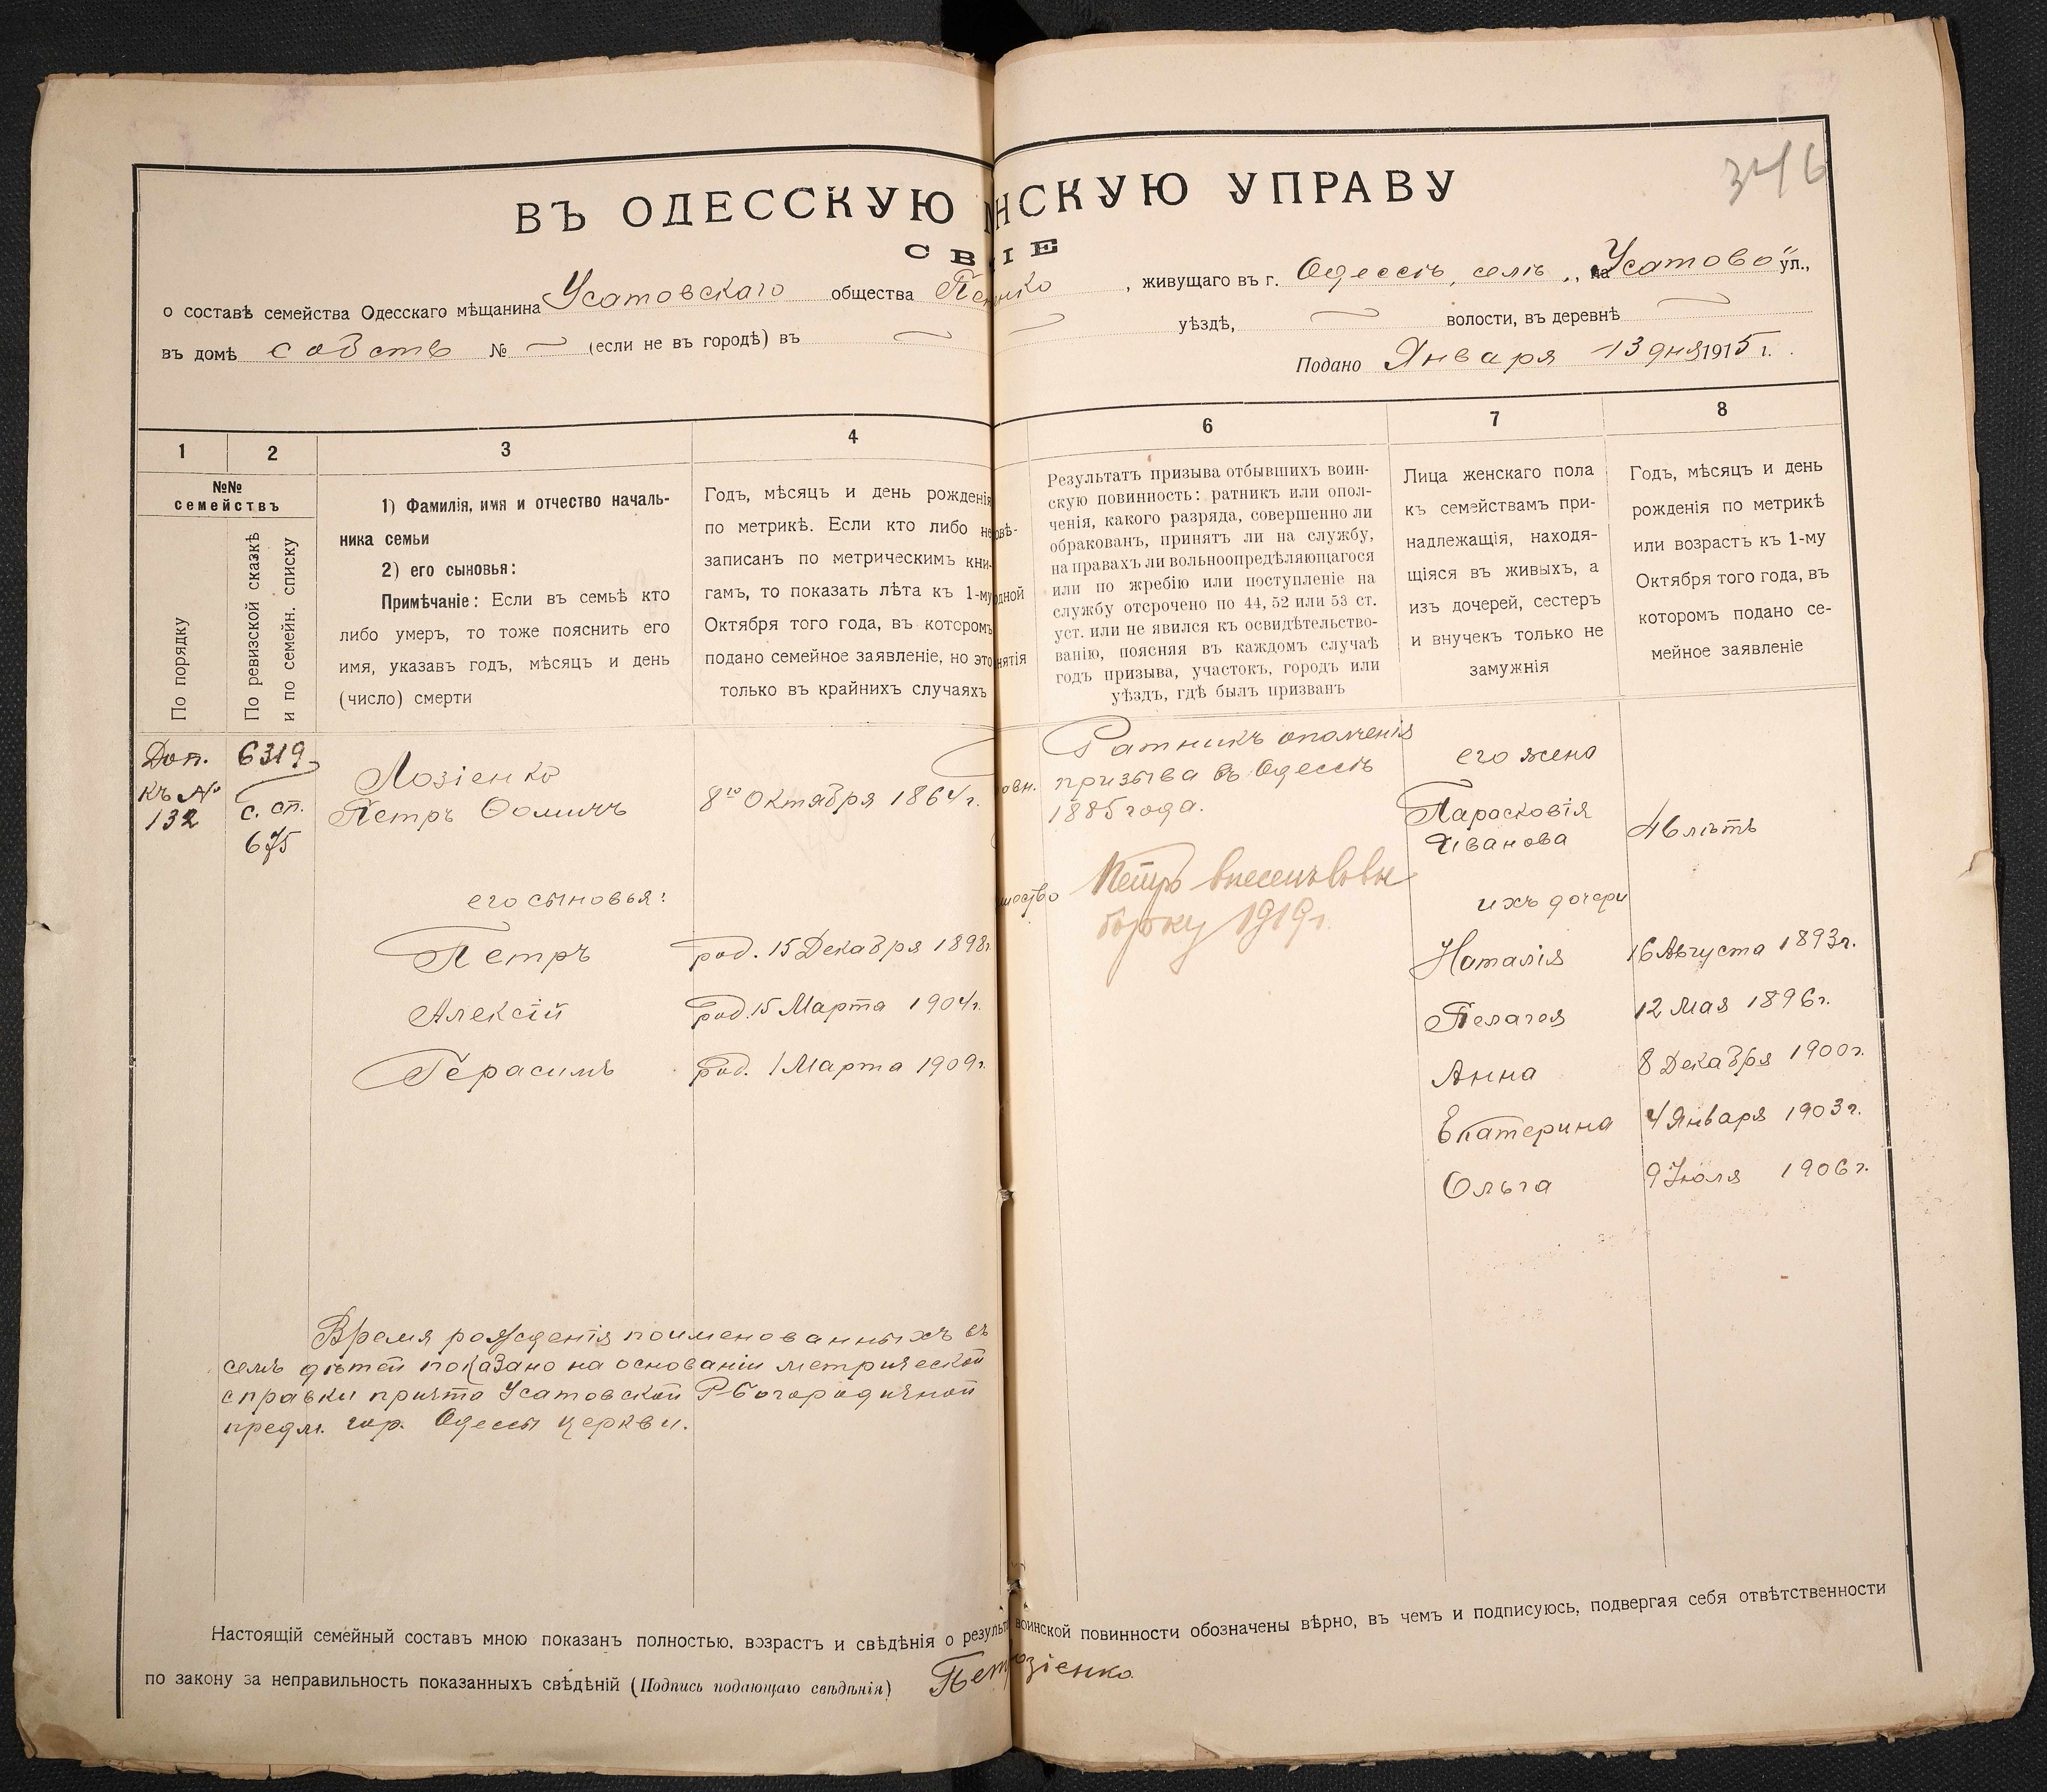 346
ВЪ ОДЕССКУЮ НСКУЮ УПРАВУ
СВ ІЕ
о составѣ семейства Одесскаго мѣщанина Усатовскаго общества , живущаго въ г. Одессѣ, селѣ „ на Усатово" ул.,
въ домѣ собств № — (если не въ городѣ) въ — уѣздѣ, — волости, въ деревнѣ —
Подано Января 13 дня 1915 г.
1 2 3 4 6 7 8
№№
семействъ
По порядку
По ревизской сказкѣ
и по семейн. списку
1) Фамилія, имя и отчество началь-
ника семьи
2) его сыновья:
Примѣчаніе: Если въ семьѣ кто
либо умеръ, то тоже пояснить его
имя, указавъ годъ, мѣсяцъ и день
(число) смерти
Годъ, мѣсяцъ и день рожденія
по метрикѣ. Если кто либо не
записанъ по метрическимъ кни-
гамъ, то показать лѣта къ 1-му
Октября того года, въ которомъ
подано семейное заявленіе, но это
только въ крайнихъ случаяхъ
овѣ-
одной
нятія
Результатъ призыва отбывшихъ воин-
скую повинность: ратникъ или опол-
ченія, какого разряда, совершенно ли
обракованъ, принятъ ли на службу,
на правахъ ли вольноопредѣляющагося
или по жребію или поступленіе на
службу отсрочено по 44, 52 или 53 ст.
уст. или не явился къ освидѣтельство-
ванію, поясняя въ каждомъ случаѣ
годъ призыва, участокъ, городъ или
уѣздъ, гдѣ былъ призванъ
Лица женскаго пола
къ семействамъ при-
надлежащія, находя-
щіяся въ живыхъ, а
изъ дочерей, сестеръ
и внучекъ только не
замужнія
Годъ, мѣсяцъ и день
рожденія по метрикѣ
или возрастъ къ 1-му
Октября того года, въ
котором подано се-
мейное заявленіе
Доп.
къ №
132
6319
с. сп.
675
Лозіенко
Петръ Ѳомичъ
8го Октября 1864 г.
овн.
Ратникъ ополченія
призыва въ Одессѣ
1885 года.
его жена
Парасковія
Иванова
46 лѣтъ
его сыновья:
Петръ внесенъ въ вы
борку 1919 г.
ихъ дочери
Петръ род. 15 Декабря 1898 г.
Наталія 16 Августа 1893 г.
Алексій род. 15 Марта 1904 г.
Пелагея 12 Мая 1896 г.
Герасимъ род. 1 Марта 1909 г.
Анна 8 Декабря 1900 г.
Екатерина 4 Января 1903 г.
Ольга 9 Іюля 1906 г.
Время рожденія поименованныхъ въ
семъ дѣтей показано на основаніи метрической
справки причта Усатовской Р-Богородичной
предм. гор. Одессы церкви.
Настоящій семейный составъ мною показанъ полностью, возрастъ и свѣдѣнія о результ воинской повинности обозначены вѣрно, въ чемъ и подписуюсь, подвергая себя отвѣтственности
по закону за неправильность показанныхъ свѣдѣній (Подпись подающаго свѣдѣнія) Пет озіенко.